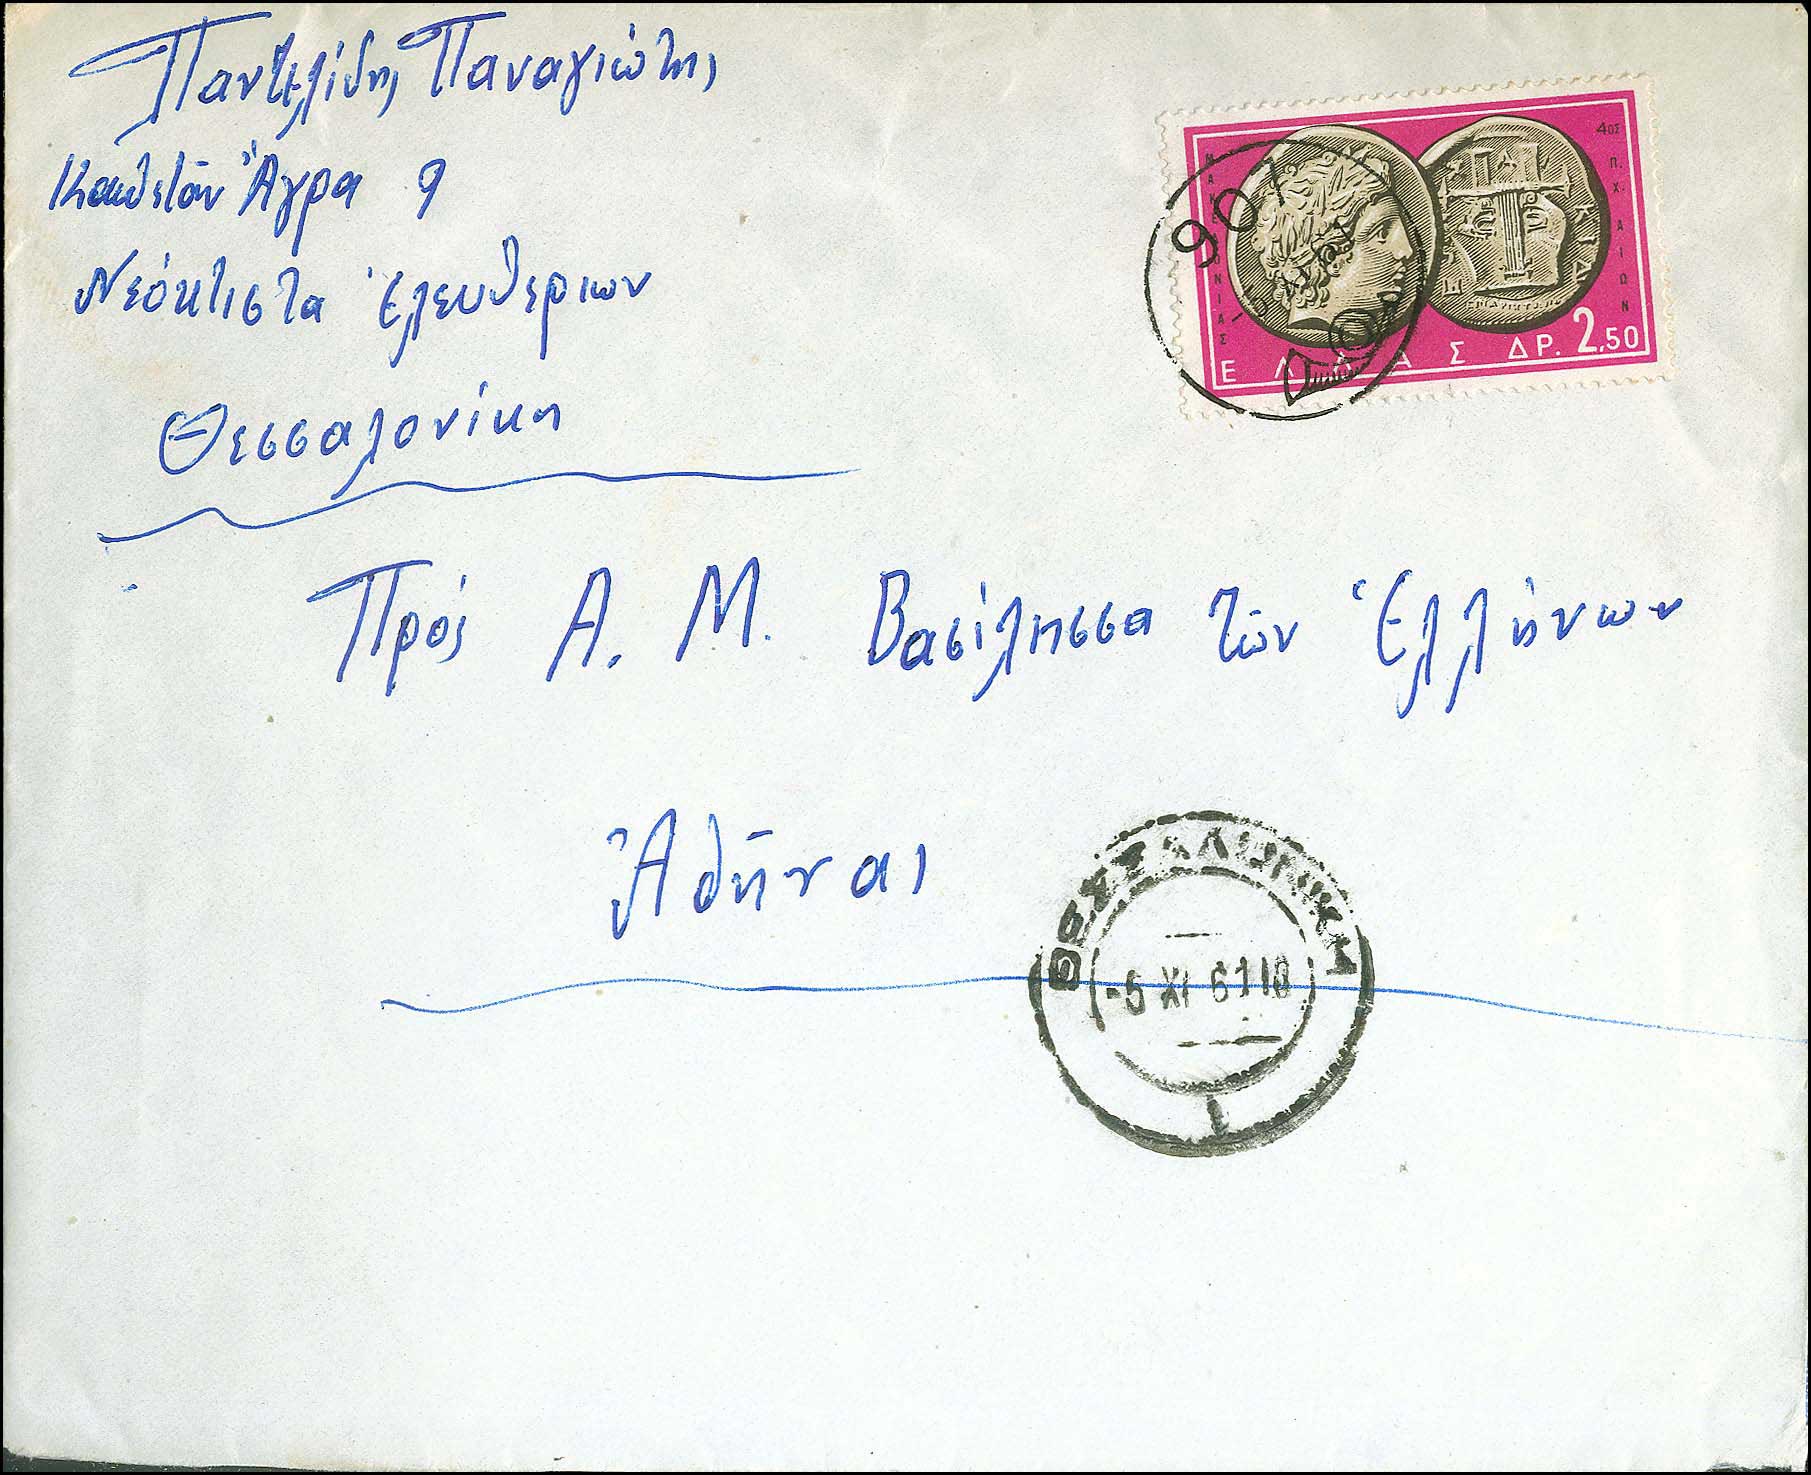 Παντελίδης Παναγιώτης
Καπετάν Ἄγρα 9
Νεόκτιστα Ἐλευθεριων
Θεσσαλονίκη
4ΟΣ Π. Χ. ΑΙΩΝ
ΜΑΚΕΔΟΝΙΑΣ
ΧΑΛΚΙΔ
ΕΛΛΑΣ ΔΡ. 2,50
907
Πρός Α. Μ. Βασίλησσα τῶν Ἑλλήνων
Ἀθῆναι
ΘΕΣΣΑΛΟΝΙΚΗ
-5 XI 61 18
1